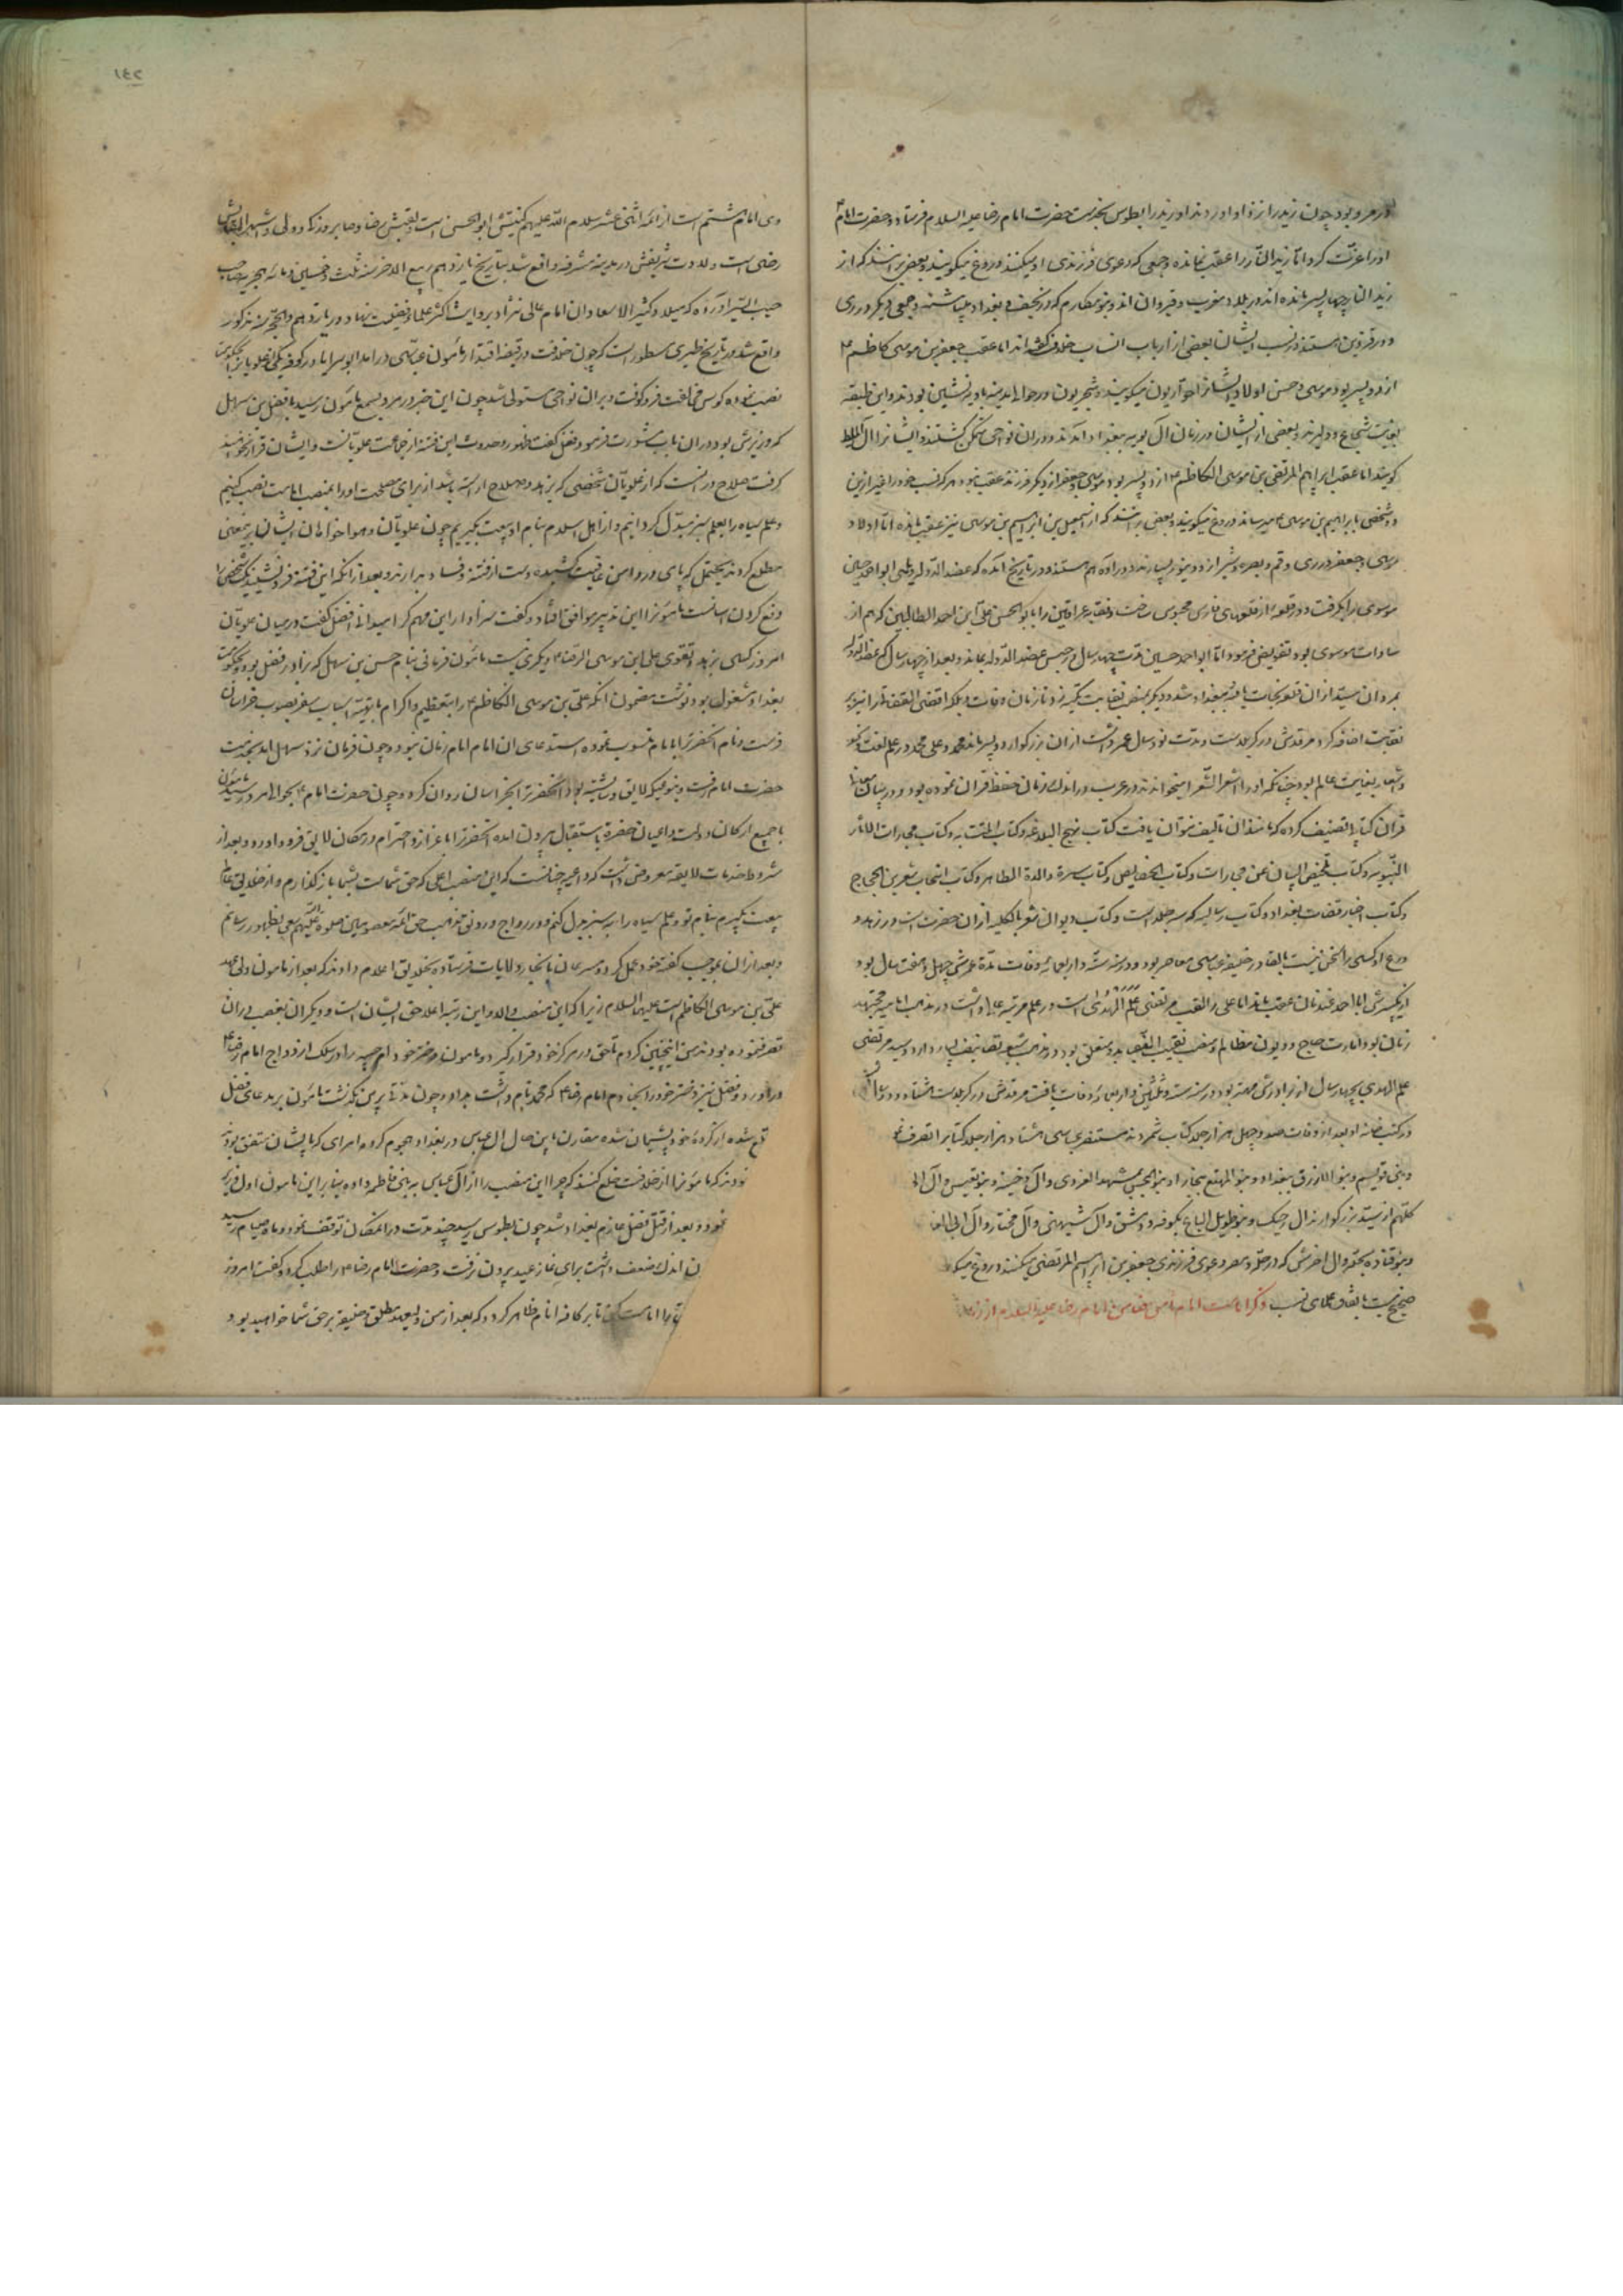 در مرو بود چون زید را نزد او اوردند او زید را بطوس بخدمت حضرت امام رضا علیه السلام فرستاد و حضرت امام
او را عزت کرد اما زید النار را عقب نمانده و جمعی که دعوی فرزندی او میکنند دروغ میکویند و بعضی برانند که از
زید النار چهار پسر مانده اند در بلاد مغرب و قیروان اند و بنو مکارم که در نجف و بغداد میباشند و جمعی دیکر در ری
و در قزوین هستند در نسب ایشان بعضی از ارباب انساب خلاف کرده اند اما عقب جعفر بن موسی کاظم ع
از دو پسر بود موسی و حسن اولاد ایشانرا حواریون میکویند و شجریون در حوالی مدینه بادیه نشین بودند و این طبقه
بغایت شجاع و دلیرند و بعضی از ایشان در زمان آل بویه ببغداد آمدند و در ان نواحی متمکن کشتند و ایشانرا آل
کویند اما عقب ابراهیم المرتضی بن موسی الکاظم ع از دو پسر بود موسی و جعفر از دیکر فرزند عقب نبود هر که نسب خود را غیر ازین
دو شخص بابراهیم بن موسی ع میرساند دروغ میکویند و بعضی برانند که از اسمعیل بن ابراهیم بن موسی نیز عقب مانده اما اولاد
موسی و جعفر در ری و قم و بصره و شیراز و دینور بسیارند و در آوه هم هستند و در تاریخ آمده که عضد الدوله دیلمی ابو احمد حسین
موسوی را بکرفت و در قلعه از قلعهای فارس محبوس ساخت و نقابه عراقین را بابو الحسن علی ابن احمد الطالبین که هم از
سادات موسوی بود تفویض فرمود اما ابو احمد حسین مدت چهار سال در حبس عضد الدوله بماند و بعد از چهار سال که عضد الدوله
بمرد ان سید از ان قلعه نجات یافته ببغداد شد و دیکر بمنصب نقابت تکیه زد تا زمان وفات بلکه اقضی القضاة را نیز بر
نقابت اضافه کرد مرقدش در کربلاست و مدت نود سال عمر داشت از ان بزرکوار دو پسر ماند محمد و علی محمد در علم لغت و نحو
و اشعار بغایت عالم بود چنانکه او را اشعر الشعرا میخواندند در عرب و در اندک زمان حفظ قران نموده بود و در بیان معانی
قران کتابی تصنیف کرده که مانند ان تالیف نتوان یافت کتاب نهج البلاغه و کتاب المتشابه و کتاب مجازات الآثار
النبویه و کتاب تلخیص البیان عن مجازات و کتاب الخصایص و کتاب سیرة والده الطاهر و کتاب انتخاب شعر بن الحجاج
و کتاب اخبار قضات بغداد و کتاب رسالیه که سه جلد است و کتاب دیوان شعر بالکلیه از ان حضرت است و در زهد و
ورع او کسی را سخن نیست بالقادر خلیفه عباسی معاصر بود و در سنه ستّه و اربعمائه وفات مدة عمرش چهل و هفت سال بود
از یکپسرش ابا احمد عدنان عقب ماند اما علی را لقب مرتضی علم الهدی است در علم مرتبه عالی داشت در مذهب امامیه مجتهد
زمان بود و امارت حاج و دیوان مظالم و منصب نقیب النقبا بدو متعلق بود و در مذهب شیعه تصانیف بسیار دارد و سید مرتضی
علم الهدی بچهار سال از برادرش مهتر بود در سنه ست و ثلثین و اربعمائه وفات یافت مرقدش در کربلاست هشتاد و دو سال
در کتب خانه او بعد از وفات صد و چهل هزار جلد کتاب شمردند مستنصر عباسی هشتاد هزار جلد کتاب را تصرف
و بنی قویسم و بنو الازرق ببغداد و بنو المهتع بحایر و بنو الحسن بمشهد الغروی و آل وخینه و بنو نفیس و آل
کلهم از سید بزرکوارند آل رجبک و بنو طویل الباع بکوفه و دمشق و آل شیهنی و آل مختار و آل ابی
و بنو قتاده بحله و آل اخرش که در حله و بصره دعوی فرزندی جعفر بن ابراهیم المرتضی میکنند دروغ
صحیح نیست باتفاق علمای نسب ذکر امامت امام ثامن ضامن امام رضا علیه السلام
١٤٢
وی امام هشتم است از ائمه اثنی عشر سلام الله علیهم کنیتش ابو الحسن است لقبش رضا و صابر و زکی و ولی و اشهر القابش
رضی است ولادت شریفش در مدینه مشرفه واقع شد بتاریخ یازدهم ربیع الاخر سنه ثلث و خمسین و مائه هجریه صاحب
حبیب السیر اورده که میلاد کثیر الاسعاد ان امام عالی نژاد بروایت اکثر علمای فضیلت نهاد در یازدهم ذی الحجه سنه مذکور
واقع شد در تاریخ طبری مسطور است که چون خلافت در قبضه اقتدار مامون عباسی درامد ابو السرایا در کوفه یکی از علویانرا بحکومت
نصب نموده کوس مخالفت فرو کوفت و بران نواحی مستولی شد چون این خبر در مرو بسمع مامون رسید با فضل بن سهل
که وزیرش بود دران باب مشورت فرمود فضل کفت ظهور و حدوث این فتنه از جماعت علویانست و ایشان قرار نخواهند
کرفت صلاح درانست که از علویان شخصی که بزهد و صلاح اراسته باشد از برای مصلحت او را بمنصب امامت نصب کنیم
و علم سیاه را بعلم سبز مبدل کردانیم و از اهل اسلام بنام او بیعت بکیریم چون علویان و هواخواهان ایشان برین معنی
مطلع کردند یحتمل که پای در دامن عافیت کشیده دست از فتنه و فساد بدارند و بعد ازانکه این فتنه فرو نشیند یکشخص را
دفع کردن اسانست مامونرا این تدبیر موافق افتاد و کفت سزاوار این مهم کرا میدانی فضل کفت در میان علویان
امروز کسی بزهد و تقوی علی ابن موسی الرضا ع دیکری نیست مامون فرمانی بنام حسن بن سهل که برادر فضل بود و بحکومت
بغداد مشغول بود نوشت مضمون انکه علی بن موسی الکاظم ع را بتعظیم و اکرام با تهیه اسباب سفر بصوب خراسان
فرست و نام انحضرترا بامام منسوب نموده استدعای ان امام امام زمان بنود و چون فرمان نزد سهل امد بخدمت
حضرت امام رفت و بنوعیکه لایق و شایسته بود انحضرترا بخراسان روان کرد و چون حضرت امام ع بحوالی مرو رسید مامون
با جمیع ارکان دولت و اعیان حضرة باستقبال بیرون امده انحضرترا باعزاز و احترام در مکان لایق فرود اورد و بعد از
شروط خدمات لایقه معروض داشت که داعیه چنانست که این منصب اعلی که حق شماست بشما باز کذارم و از خلایق تمام
بیعت بکیرم بنام تو و علم سیاه را به سبز بدل کنم و در رواج و رونق مذهب حق ائمه معصومین صلوة الله علیهم سعی بظهور رسانم
و بعد ازان بموجب کفته خود عمل کرد و مسرعان بانحا و ولایات فرستاده بخلایق اعلام دادند که بعد از مامون ولی عهد
علی بن موسی الکاظم است علیهما السلام زیرا که این منصب والا و این رتبه اعلا حق ایشان است و دیکران بغصب دران
تصرف نموده بودند من اینچنین کردم تا حق در مرکز خود قرار کیرد و مامون دختر خود ام حبیبه را در سلک ازدواج امام رضا ع
دراورد و فضل نیز دختر خود را بخادم امام رضا ع که محمد نام داشت بداد و چون مدتی برین بکذشت مامون بر مدعای فضل
مطلع شده از کردهٔ خود پشیمان شده مقارن این حال ال عباس در بغداد هجوم کرده امرای که بایشان متفق بودند
نمودند که مامونرا از خلافت خلع کنند که چرا این منصب را از آل عباس به بنی فاطمه داده بنابراین مامون اول وزیر
نمود و بعد از قتل فضل عازم بغداد شد چون بطوس رسید چند مدت درانمکان توقف نمود و ماه صیام رسید
اندک ضعف داشت برای نماز عید بیرون نرفت و حضرت امام رضا ع را طلب کرد و کفت امروز
امامت کن تا بر کافه انام ظاهر کردد که بعد از من ولیعهد مطلق و خلیفه برحق شما خواهید بود